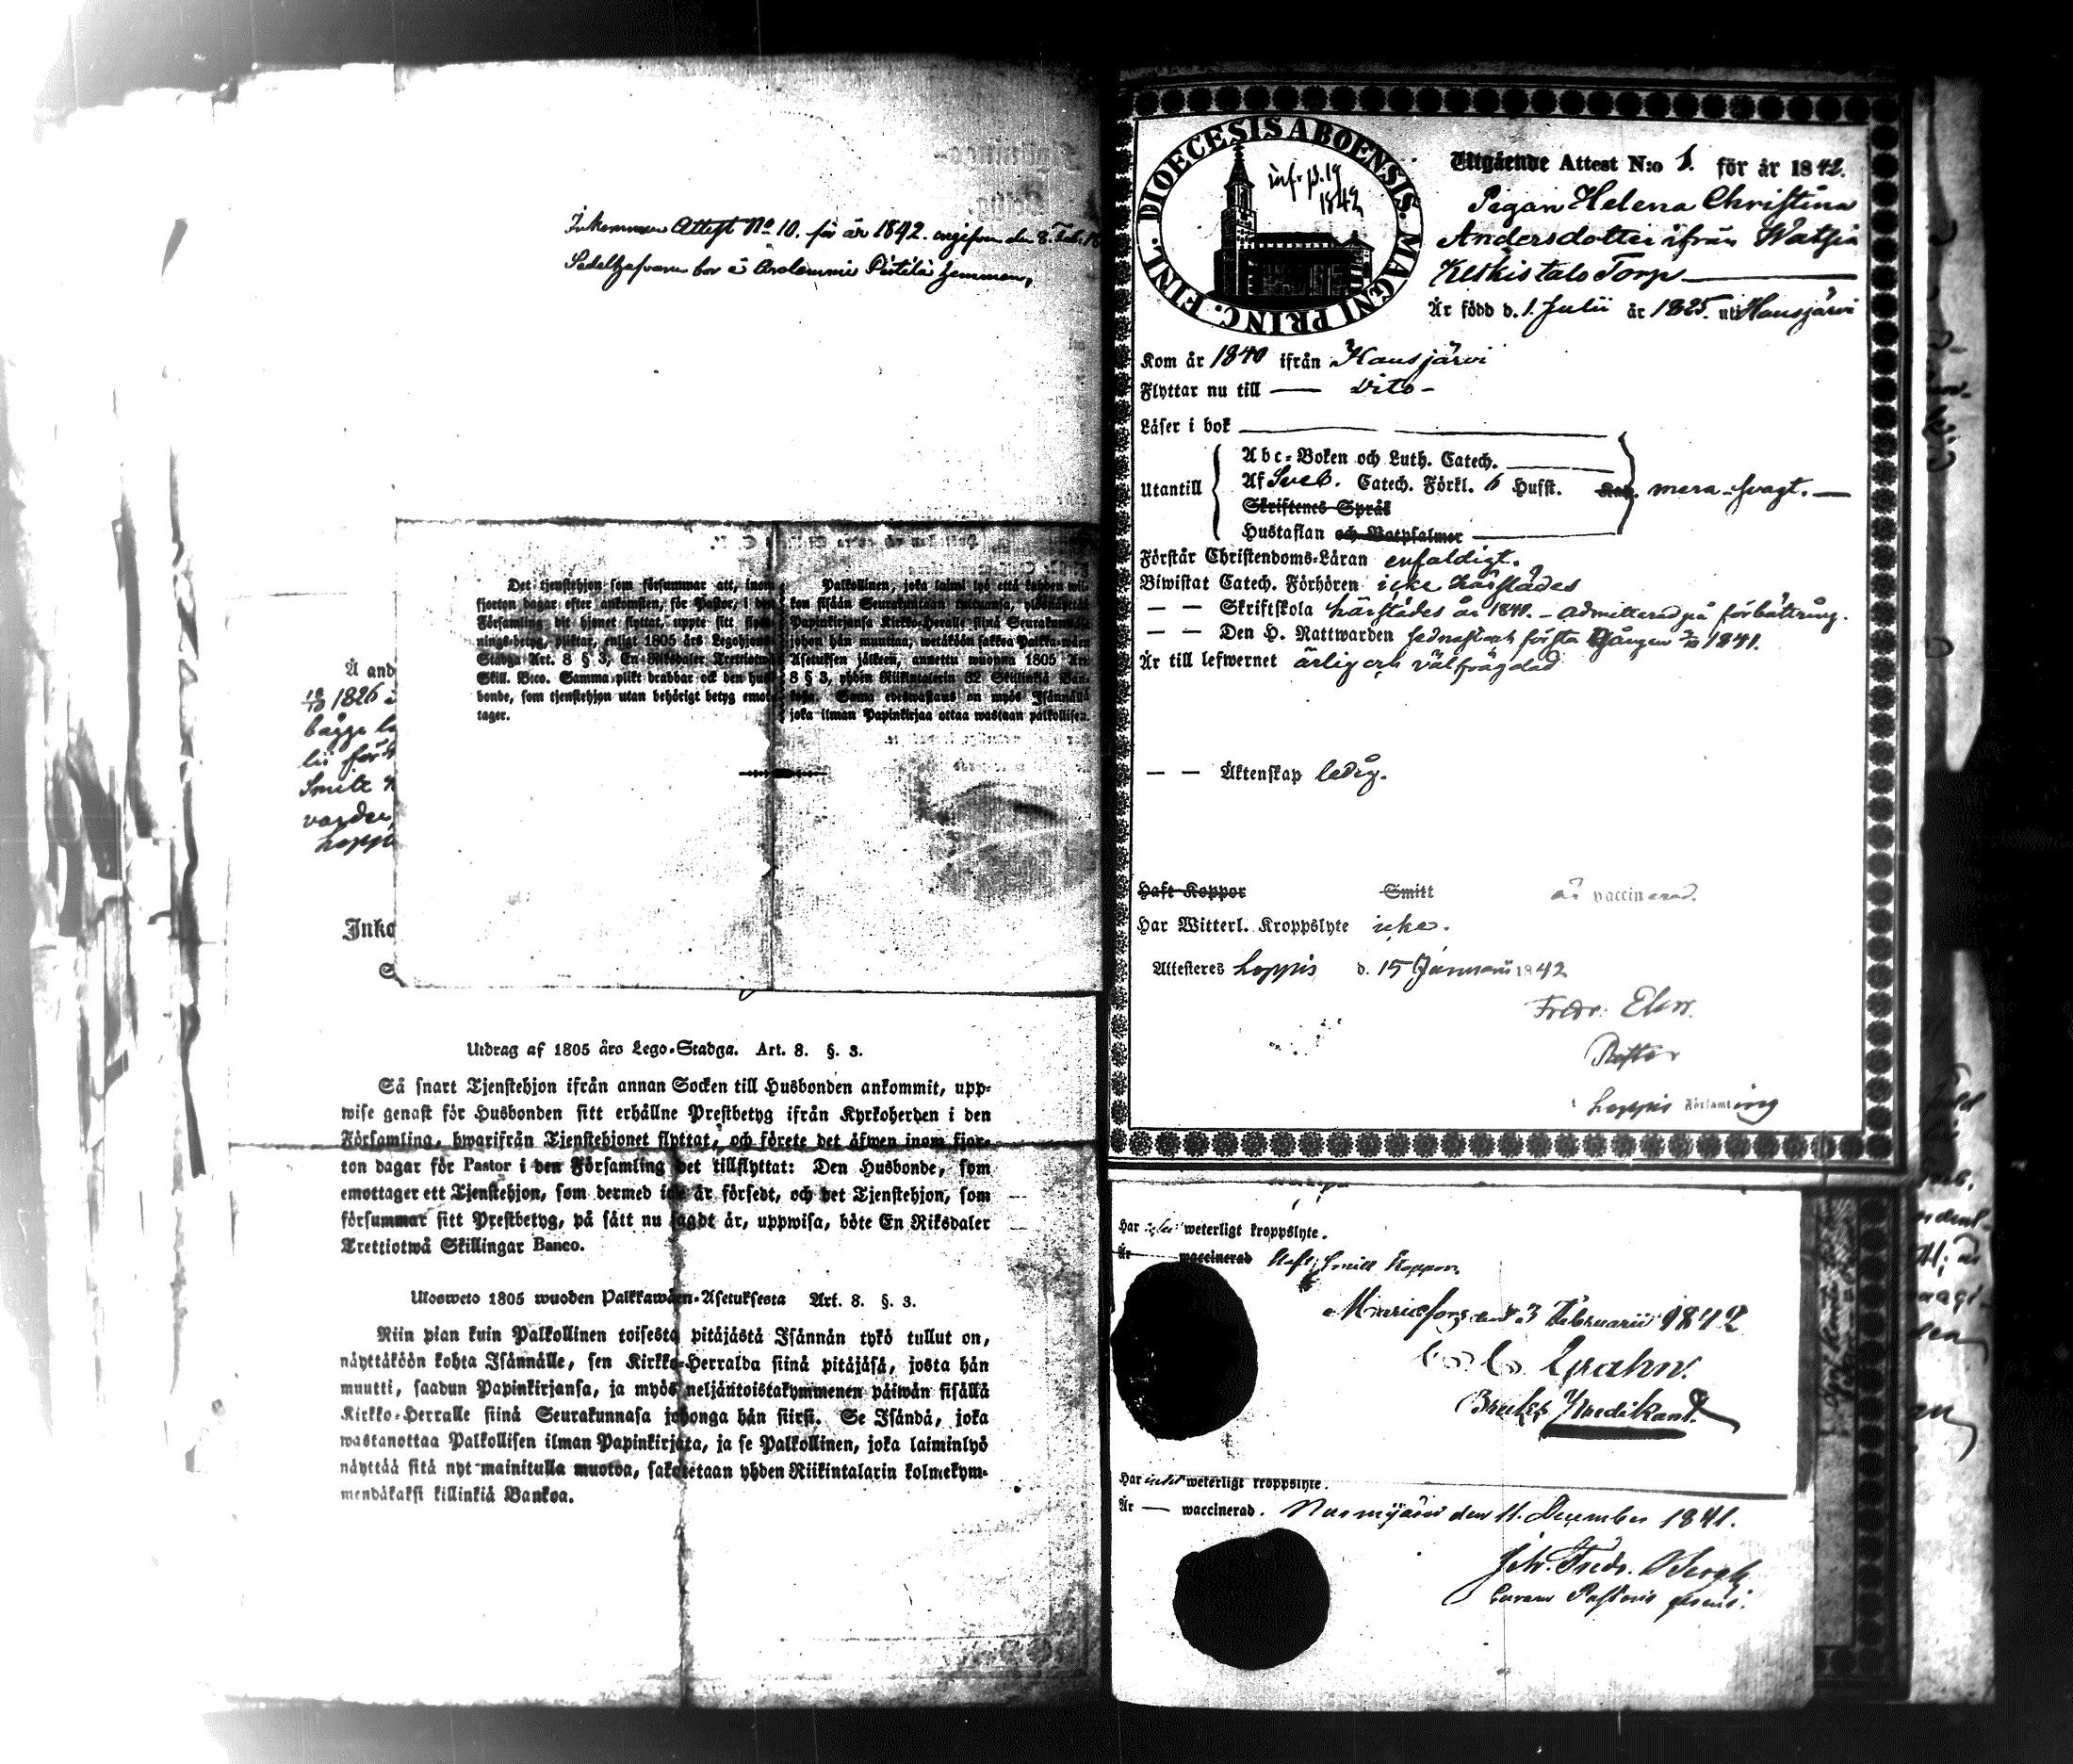 Inkommen Attest No 10. för år 1842. den 8. Feb.
bor å Pertilä hemman,
Det tjenstehjon som försummar att, inom
fjorton dagar efter ankomsten, för Pastor, i den
Församling dit hjonet flyttat, uppte sitt flytt-
ningsbetyg, pliktar, enligt 1805 års Legohjons
Stadga Art. 8 § 3, En Riksdaler Trettiotwå
Skill. Bco. Samma plikt drabbar ock den hus-
bonde, som tjenstehjon utan behörigt betyg emot-
tager.
Palkollinen, joka laimi lyö että kahden wii-
kon sisään Seurakuntaan tultuansa,
Papinkirjansa Kirkko-Heralle siinä Seurakunnasa
johon hän muuttaa, wetäköön sakkoa Palkka-wäen
Asetuksen jälkeen, annettu wuonna 1805 Art.
8 § 3, yhden Riikintalerin 32 Skillinkiä Ban-
kosa. Sama edeswastaus on myös Isännällä
joka ilman Papinkirjaa ottaa wastaan palkollisen.
Å and
1826
bägge
lii för
Smitt
Inko
Utdrag af 1805 års Lego-Stadga. Art. 8. §. 3.
Så snart Tjenstehjon ifrån annan Socken till Husbonden ankommit, upp-
wise genast för Husbonden sitt erhållne Prestbetyg ifrån Kyrkoherden i den
Församling, hwarifrån Tjenstehjonet flyttat, och förete det äfwen inom fjor-
ton dagar för Pastor i den Församling det tillflyttat: Den Husbonde, som
emottager ett Tjenstehjon, som dermed icke är försedt, och det Tjenstehjon, som
försummar sitt Prestbetyg, på sätt nu sagdt är, uppwisa, böte En Riksdaler
Trettiotwå Skillingar Banco.
Ulosweto 1805 wuoden Palkkawäen-Asetuksesta Art. 8. §. 3.
Niin pian kuin Palkollinen toisesta pitäjästä Isännän tykö tullut on,
näyttäköön kohta Isännälle, sen Kirkko-Herralda siinä pitäjäsä, josta hän
muutti, saadun Papinkirjansa, ja myös neljäntoistakymmenen päiwän sisällä
Kirkko-Herralle siinä Seurakunnasa johonga hän siirsi. Se Isändä, joka
wastanottaa Palkollisen ilman Papinkirjata, ja se Palkollinen, joka laiminlyö
näyttää sitä nyt mainitulla muotoa, sakotetaan yhden Riikintalarin kolmekym-
mendäkaksi killinkiä Bankoa.
DIOECESIS ABOENSIS. MAGNI PRINC. FINL.
inf. p. 19
1842
Utgående Attest N:o 1. för år 1842.
Pigan Helena Christina
Andersdotter ifrån Watsia
Keskistalo Torp
Är född d. 1. Julii år 1825. uti Hausjärvi
Kom år 1840 ifrån Hausjärvi
Flyttar nu till — Dito —
Läser i bok
Utantill
Abc-Boken och Luth. Catech.
Af Sveb. Catech. Förkl. 6 Hufst. mera svagt.
Skriftenes Språk
Hustaflan och Botpsalmer
Förstår Christendoms-Läran enfaldigt.
Biwistat Catech. Förhören icke härstädes
— — Skriftskola härstädes år 1840. - admitterad på förbättring.
— — Den H. Nattwarden sednast och första gången 1841.
Är till lefwernet ärlig och välfrägdad
— — Äktenskap ledig.
Haft Koppor Smitt är vaccinerad.
Har Witterl. Kroppslyte icke.
Attesteres Loppis d. 15 Januarii 1842
Fredr.
Pastor
Loppis Församling
Har weterligt kroppslyte.
Är waccinerad Haft Smitt Koppor.
Mariefors den 3 Februarii 1842
Bruks Predikant.
Har intet weterligt kroppslyte.
Är — waccinerad. Nurmijärvi den 11. December 1841.
Joh. Fredr. Bergh
Curam Pastoris gerens.